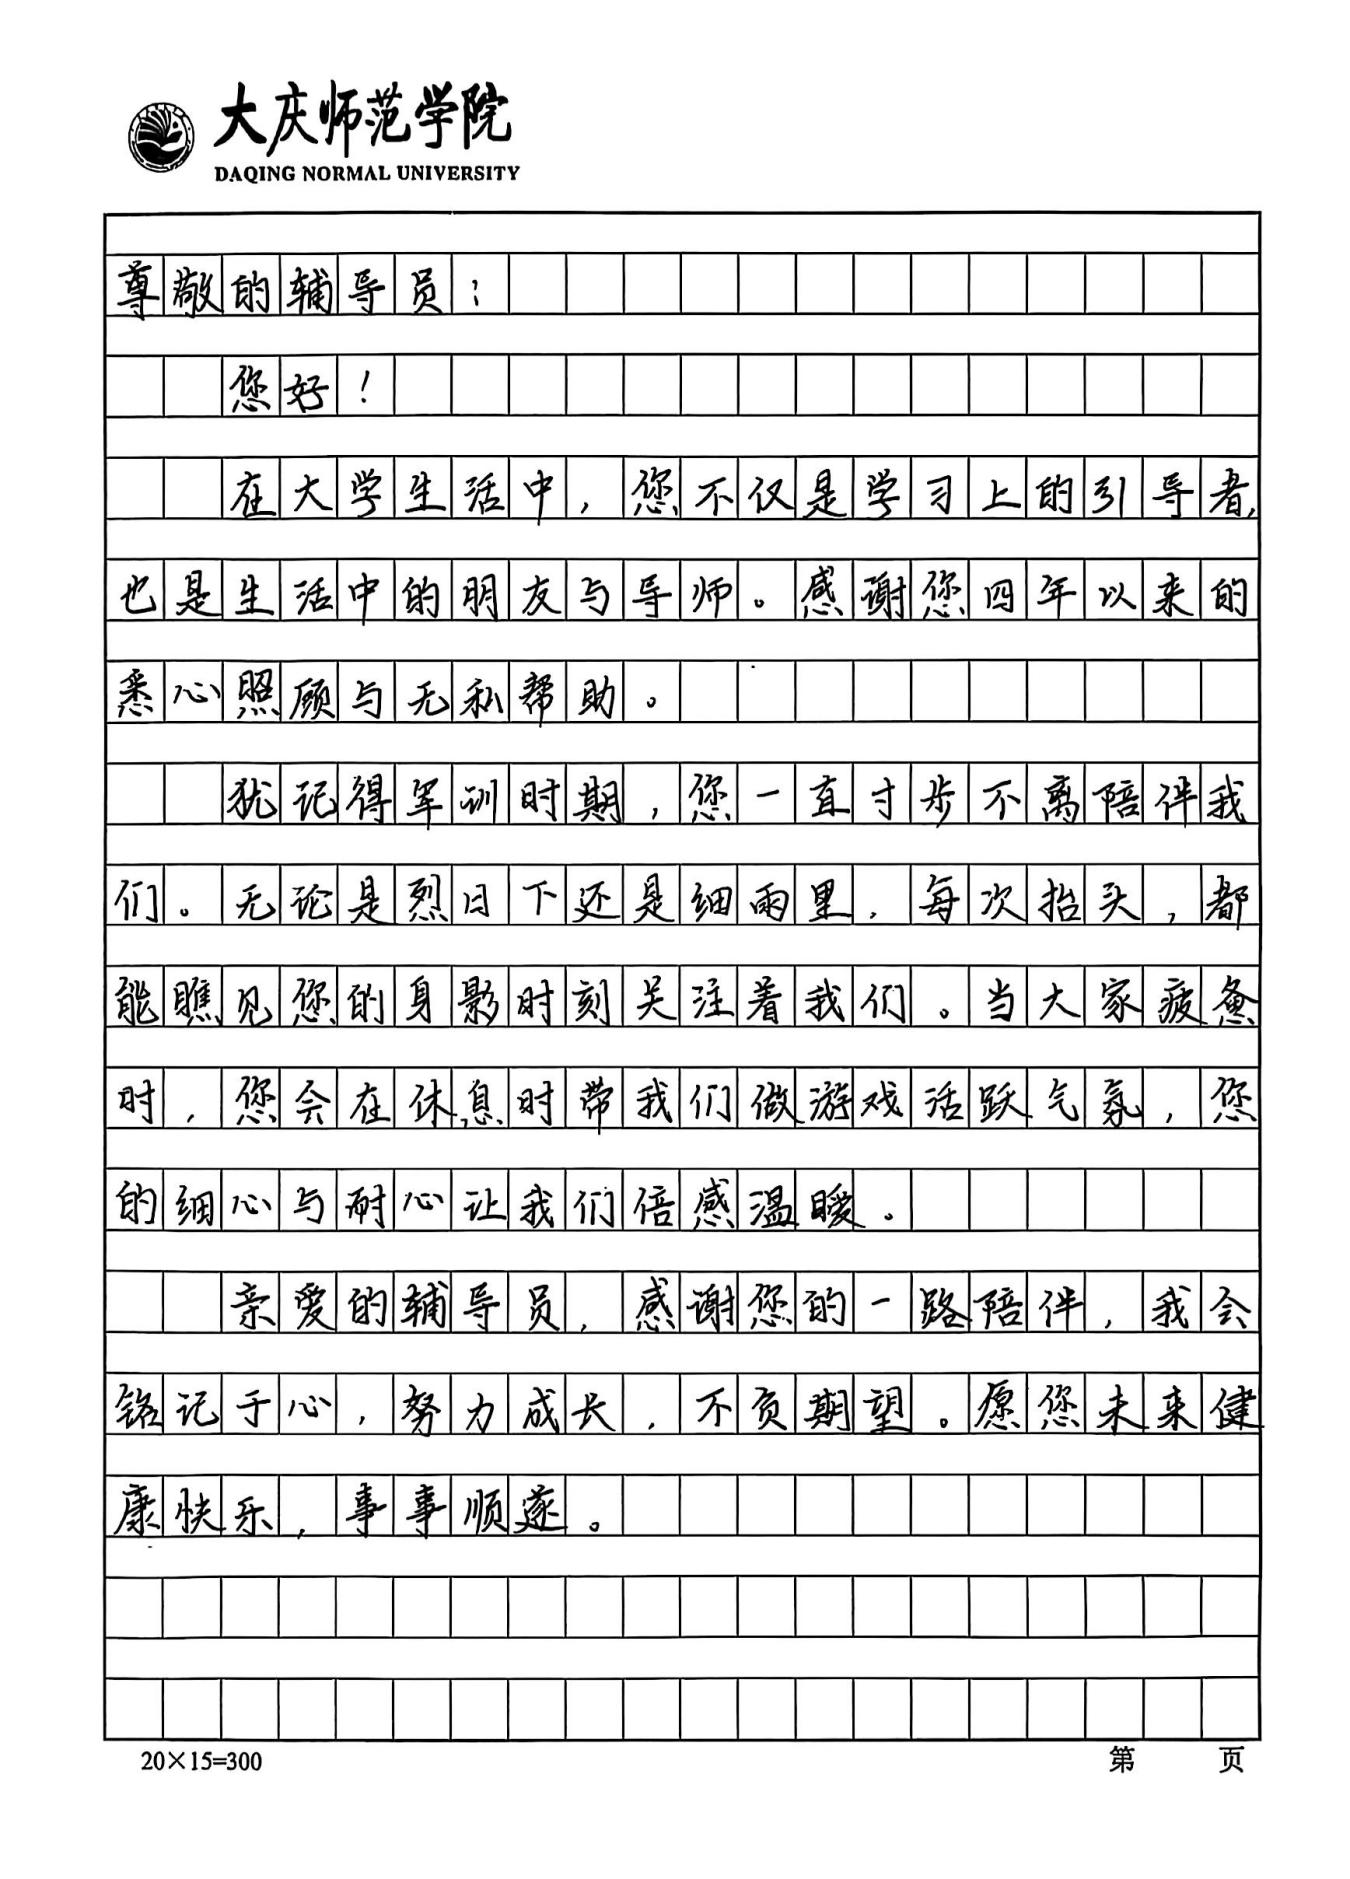 大庆师范学院
DAQING NORMAL UNIVERSITY
尊敬的辅导员：
您好！
在大学生活中，您不仅是学习上的引导者，
也是生活中的朋友与导师。感谢您四年以来的
悉心照顾与无私帮助。
犹记得军训时期，您一直寸步不离陪伴我
们。无论是烈日下还是细雨里，每次抬头，都
能瞧见您的身影时刻关注着我们。当大家疲惫
时，您会在休息时带我们做游戏活跃气氛，您
的细心与耐心让我们倍感温暖。
亲爱的辅导员，感谢您的一路陪伴，我会
铭记于心，努力成长，不负期望。愿您未来健
康快乐，事事顺遂。
20×15=300
第 页